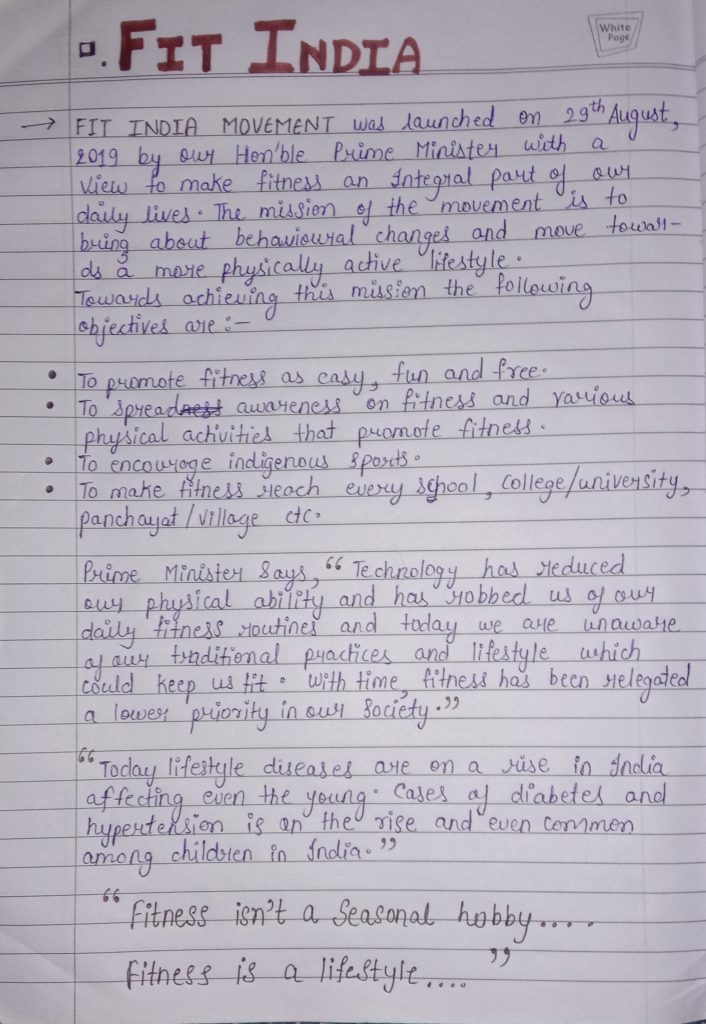 FIT INDIA
White
Page
→ FIT INDIA MOVEMENT was launched on 29th August,
2019 by our Hon'ble Prime Minister with a
view to make fitness an Integral part of our
daily lives. The mission of the movement is to
bring about behavioural changes and move towar-
ds a more physically active lifestyle.
Towards achieving this mission the following
objectives are :-
• To promote fitness as easy, fun and free.
• To spreadness awareness on fitness and various
physical activities that promote fitness.
• To encourage indigenous sports.
• To make fitness reach every school, college/university,
panchayat/village etc.
Prime Minister Says, "Technology has reduced
our physical ability and has robbed us of our
daily fitness routines and today we are unaware
of our traditional practices and lifestyle which
could keep us fit. With time, fitness has been relegated
a lower priority in our Society."
"Today lifestyle diseases are on a rise in India
affecting even the young. Cases of diabetes and
hypertension is on the rise and even common
among children in India."
"Fitness isn't a Seasonal hobby....
Fitness is a lifestyle...."